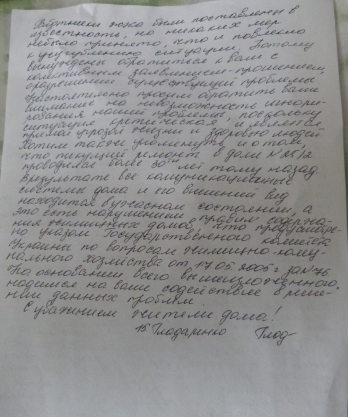 были поставлены в
известность, но никаких мер
не было принято, что и повлекло
к усугублению ситуации. Потому
вынуждены обратиться к Вам с
коллективным заявлением-прошением,
существующей проблемы
Убедительно просим обратить Ваше
внимание на невозможность игнори-
рования нашей проблемы, поскольку
ситуация критическая и является
прямой угрозой жизни и здоровью людей
Хотим также упомянуть и о том,
что текущий ремонт в доме №
проводился более 30 лет тому назад.
В результате все коммуникационные
системы дома и его внешний вид
находятся в ужасном состоянии, а
это есть нарушением правил содержа-
ния жилищных домов, что предусмотре-
но указом Государственного комитета
Украины по вопросам жилищно-комму-
нального хозяйства от 17.05.2005 г. №76
На основании всего вышеизложенного,
надеемся на ваше содействие в реше-
нии данных проблем.
С уважением жители дома!